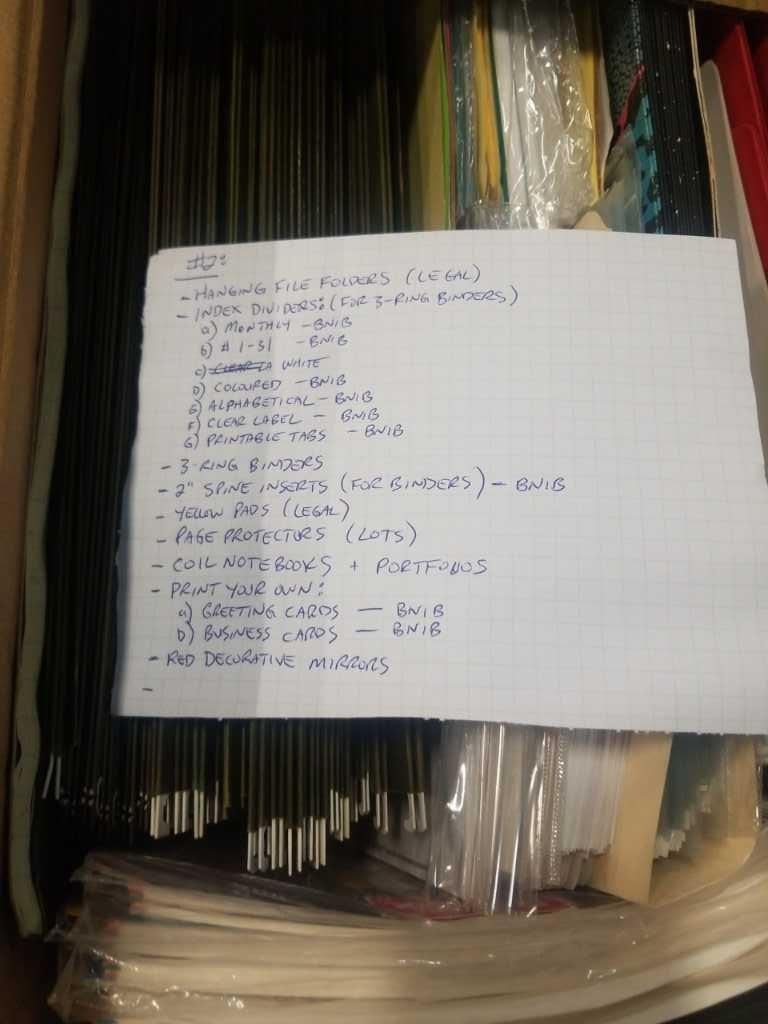 #2:
- HANGING FILE FOLDERS (LEGAL)
- INDEX DIVIDERS: (FOR 3-RING BINDERS)
a) MONTHLY - BNIB
b) # 1-31 - BNIB
c) WHITE
D) COLOURED - BNIB
E) ALPHABETICAL - BNIB
F) CLEAR LABEL - BNIB
G) PRINTABLE TABS - BNIB
- 3-RING BINDERS
- 2" SPINE INSERTS (FOR BINDERS) - BNIB
- YELLOW PADS (LEGAL)
- PAGE PROTECTORS (LOTS)
- COIL NOTEBOOKS + PORTFOLIOS
- PRINT YOUR OWN:
a) GREETING CARDS - BNIB
b) BUSINESS CARDS - BNIB
- RED DECORATIVE MIRRORS
-